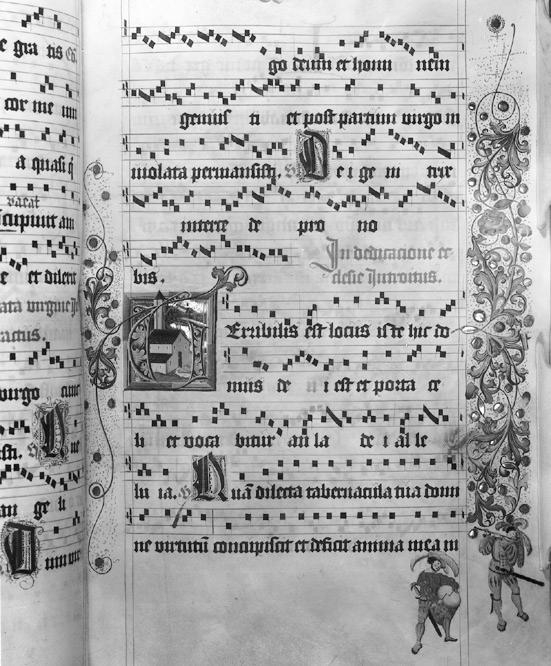 e gra tis
cor me um
a quasi q
vacat
cupiunt am
e et
ata virgine
ractus.
virgo
an ge li
go deum et homi nem
genuis ti et post partum virgo in
uiolata permansisti. De i ge ni trix
interce de pro no
bis. In dedicacione ec
clesie Introitus.
Terribilis est locus iste hic do
mus de i est et porta ce
li et voca bitur au la de i al le
lu ia. Quā dilecta tabernacula tua domi
ne virtutū concupiscit et deficit anima mea in